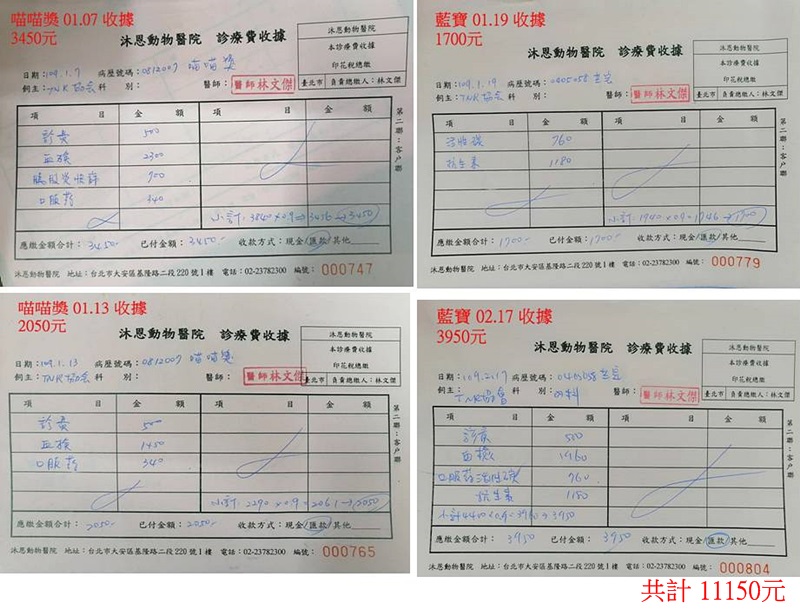 喵喵獎 01.07 收據
3450元
沐恩動物醫院 診療費收據
沐恩動物醫院
本診療費收據
印花稅總繳
臺北市 負責總繳人:林文傑
日期:109.1.7 病歷號碼:0812007 喵喵獎
飼主:TNR協會 科 別: 醫師: 醫師林文傑
項 目 金 額 項 目 金 額
診費 500
血檢 2300
700
口服藥 340
小計:3840×0.9=3456→3450
第二聯:
應繳金額合計:3450- 已付金額:3450- 收款方式:現金/匯款/其他
沐恩動物醫院 地址:台北市大安區基隆路二段220號1樓 電話:02-23782300 編號:000747
藍寶 01.19 收據
1700元
沐恩動物醫院 診療費收據
沐恩動物醫院
本診療費收據
印花稅總繳
臺北市 負責總繳人:林文傑
日期:109.1.19 病歷號碼:
飼主:TNR協會 科 別: 醫師: 醫師林文傑
項 目 金 額 項 目 金 額
760
抗生素 1180
小計:1940×0.9=1746→1700
第二聯:
應繳金額合計:1700- 已付金額:1700- 收款方式:現金/匯款/其他
沐恩動物醫院 地址:台北市大安區基隆路二段220號1樓 電話:02-23782300 編號:000779
喵喵獎 01.13 收據
2050元
沐恩動物醫院 診療費收據
沐恩動物醫院
本診療費收據
印花稅總繳
臺北市 負責總繳人:林文傑
日期:109.1.13 病歷號碼:0812007 喵喵獎
飼主:TNR協會 科 別: 醫師: 醫師林文傑
項 目 金 額 項 目 金 額
診費 500
血檢 1450
口服藥 340
小計:2290×0.9=2061→2050
第二聯:
應繳金額合計:2050- 已付金額:2050- 收款方式:現金/匯款/其他
沐恩動物醫院 地址:台北市大安區基隆路二段220號1樓 電話:02-23782300 編號:000765
藍寶 02.17 收據
3950元
沐恩動物醫院 診療費收據
沐恩動物醫院
本診療費收據
印花稅總繳
臺北市 負責總繳人:林文傑
日期:109.2.17 病歷號碼:
飼主:TNR協會 科 別: 醫師: 醫師林文傑
項 目 金 額 項 目 金 額
診療 500
血檢 1960
口服藥 760
抗生素 1180
小計 ×0.9= →3950
第二聯:
應繳金額合計:3950 已付金額:3950 收款方式:現金/匯款/其他
沐恩動物醫院 地址:台北市大安區基隆路二段220號1樓 電話:02-23782300 編號:000804
共計 11150元